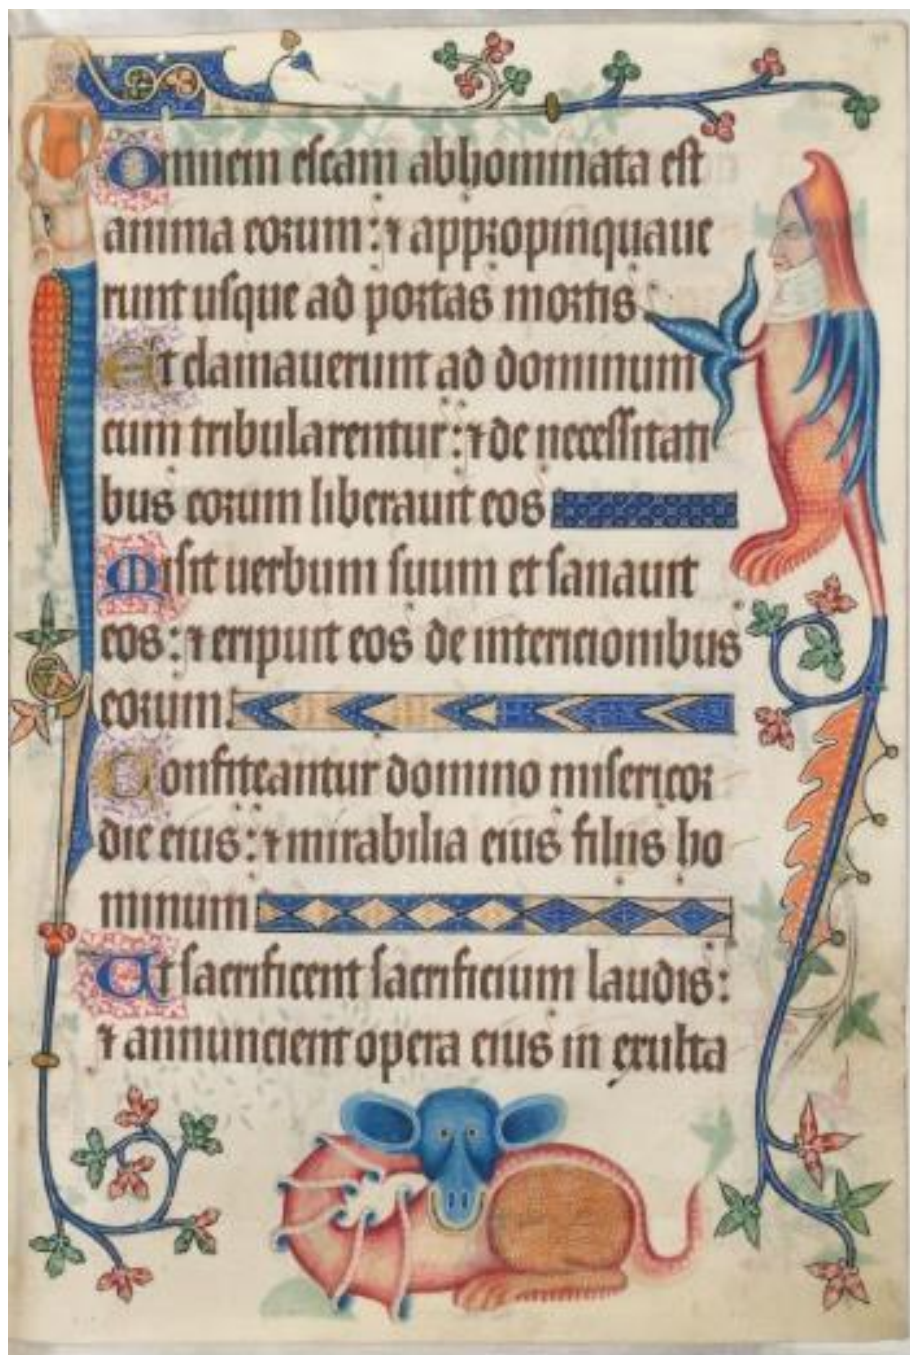 Omnem escam abhominata est
anima eorum : ⁊ appropinquaue
runt usque ad portas mortis.
Et clamauerunt ad dominum
cum tribularentur : ⁊ de necessitati
bus eorum liberauit eos
Misit uerbum suum et sanauit
eos : ⁊ eripuit eos de intericionibus
eorum.
Confiteantur domino misericor
die eius : ⁊ mirabilia eius filiis ho
minum
Et sacrificent sacrificium laudis :
⁊ annuncient opera eius in exulta